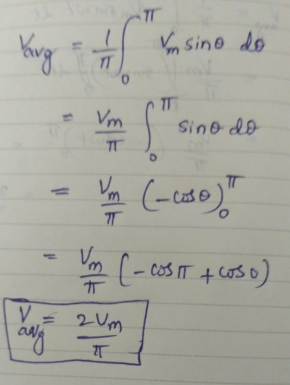 V_avg = 1/π ∫₀^π V_m sinθ dθ
= V_m/π ∫₀^π sinθ dθ
= V_m/π (-cosθ)₀^π
= V_m/π (-cosπ + cos0)
V_avg = 2V_m/π